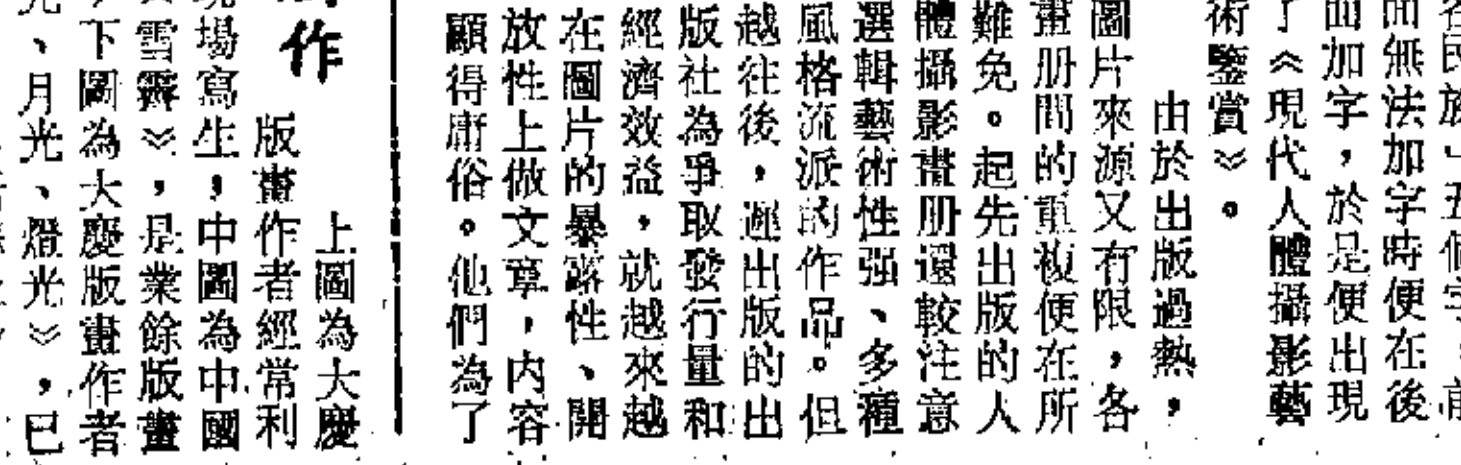 各民族」五個字，前
面無法加字時便在後
面加字，於是便出現
了《現代人體攝影藝
術鑒賞》。
由於出版過熱，
圖片來源又有限，各
畫册間的重複便在所
難免。起先出版的人
體攝影畫册還較注意
選輯藝術性强、多種
風格流派的作品。但
越往後，遲出版的出
版社為爭取發行量和
經濟效益，就越來越
在圖片的暴露性、開
放性上做文章，内容
顯得庸俗。他們為了
作
上圖為大慶
版畫作者經常利
場寫生，中圖為中國
雪霽》，是業餘版畫
下圖為大慶版畫作者
、月光、燈光》，已